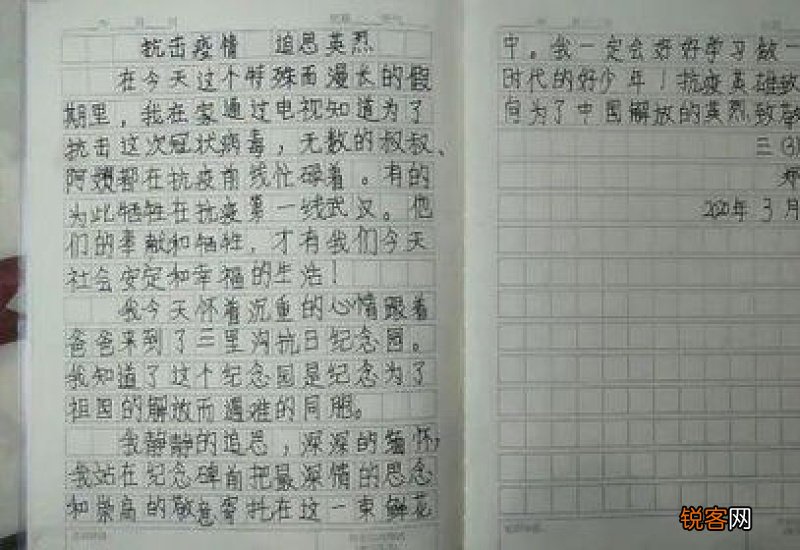 抗击疫情 追思英烈
在今天这个特殊而漫长的假
期里，我在家通过电视知道为了
抗击这次冠状病毒，无数的叔叔、
阿姨都在抗疫前线忙碌着。有的
为此牺牲在抗疫第一线武汉。他
们的奉献和牺牲，才有我们今天
社会安定和幸福的生活！
我今天怀着沉重的心情跟着
爸爸来到了三里沟抗日纪念园。
我知道了这个纪念园是纪念为了
祖国的解放而遇难的同胞。
我静静的追思，深深的缅怀，
我站在纪念碑前把最深情的思念
和崇高的敬意寄托在这一束鲜花
中。我一定会好好学习做一
时代的好少年！抗疫英雄致
向为了中国解放的英烈致敬
三（3）
2020年3月
锐客网